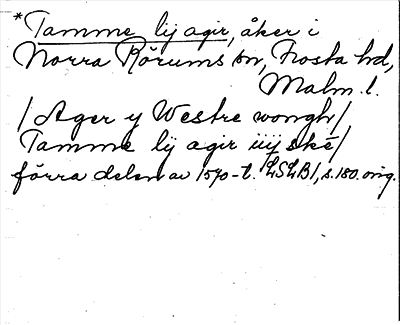 *Tamme lij agir, åker i
Norra Rörums sn, Frosta hd,
Malm. l.
/Ager y Westre wongh/
Tamme lij agir iiij ske/
förra delen av 1570-t. LSLB1, s.180. orig.